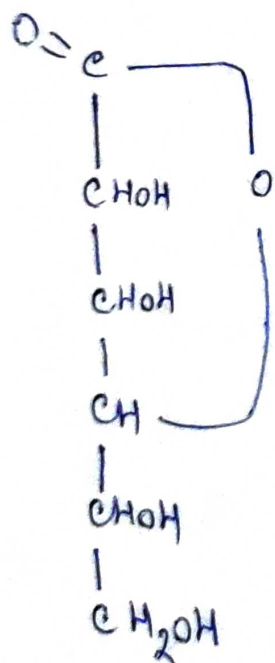 O=C
CHOH O
CHOH
CH
CHOH
CH₂OH